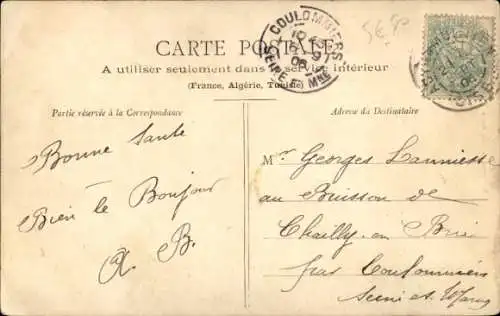 CARTE POSTALE
A utiliser seulement dans le service intérieur
(France, Algérie, Tunisie)
Partie réservée à la Correspondance
Adresse du Destinataire
COULOMMIERS
SEINE-ET-MNE
S&P
Bonne Santé
Bien le Bonjour
A. B.
Mr Georges Lanniesse
au Buisson de
Chailly en Brie
par Coulommiers
Seine et Marne